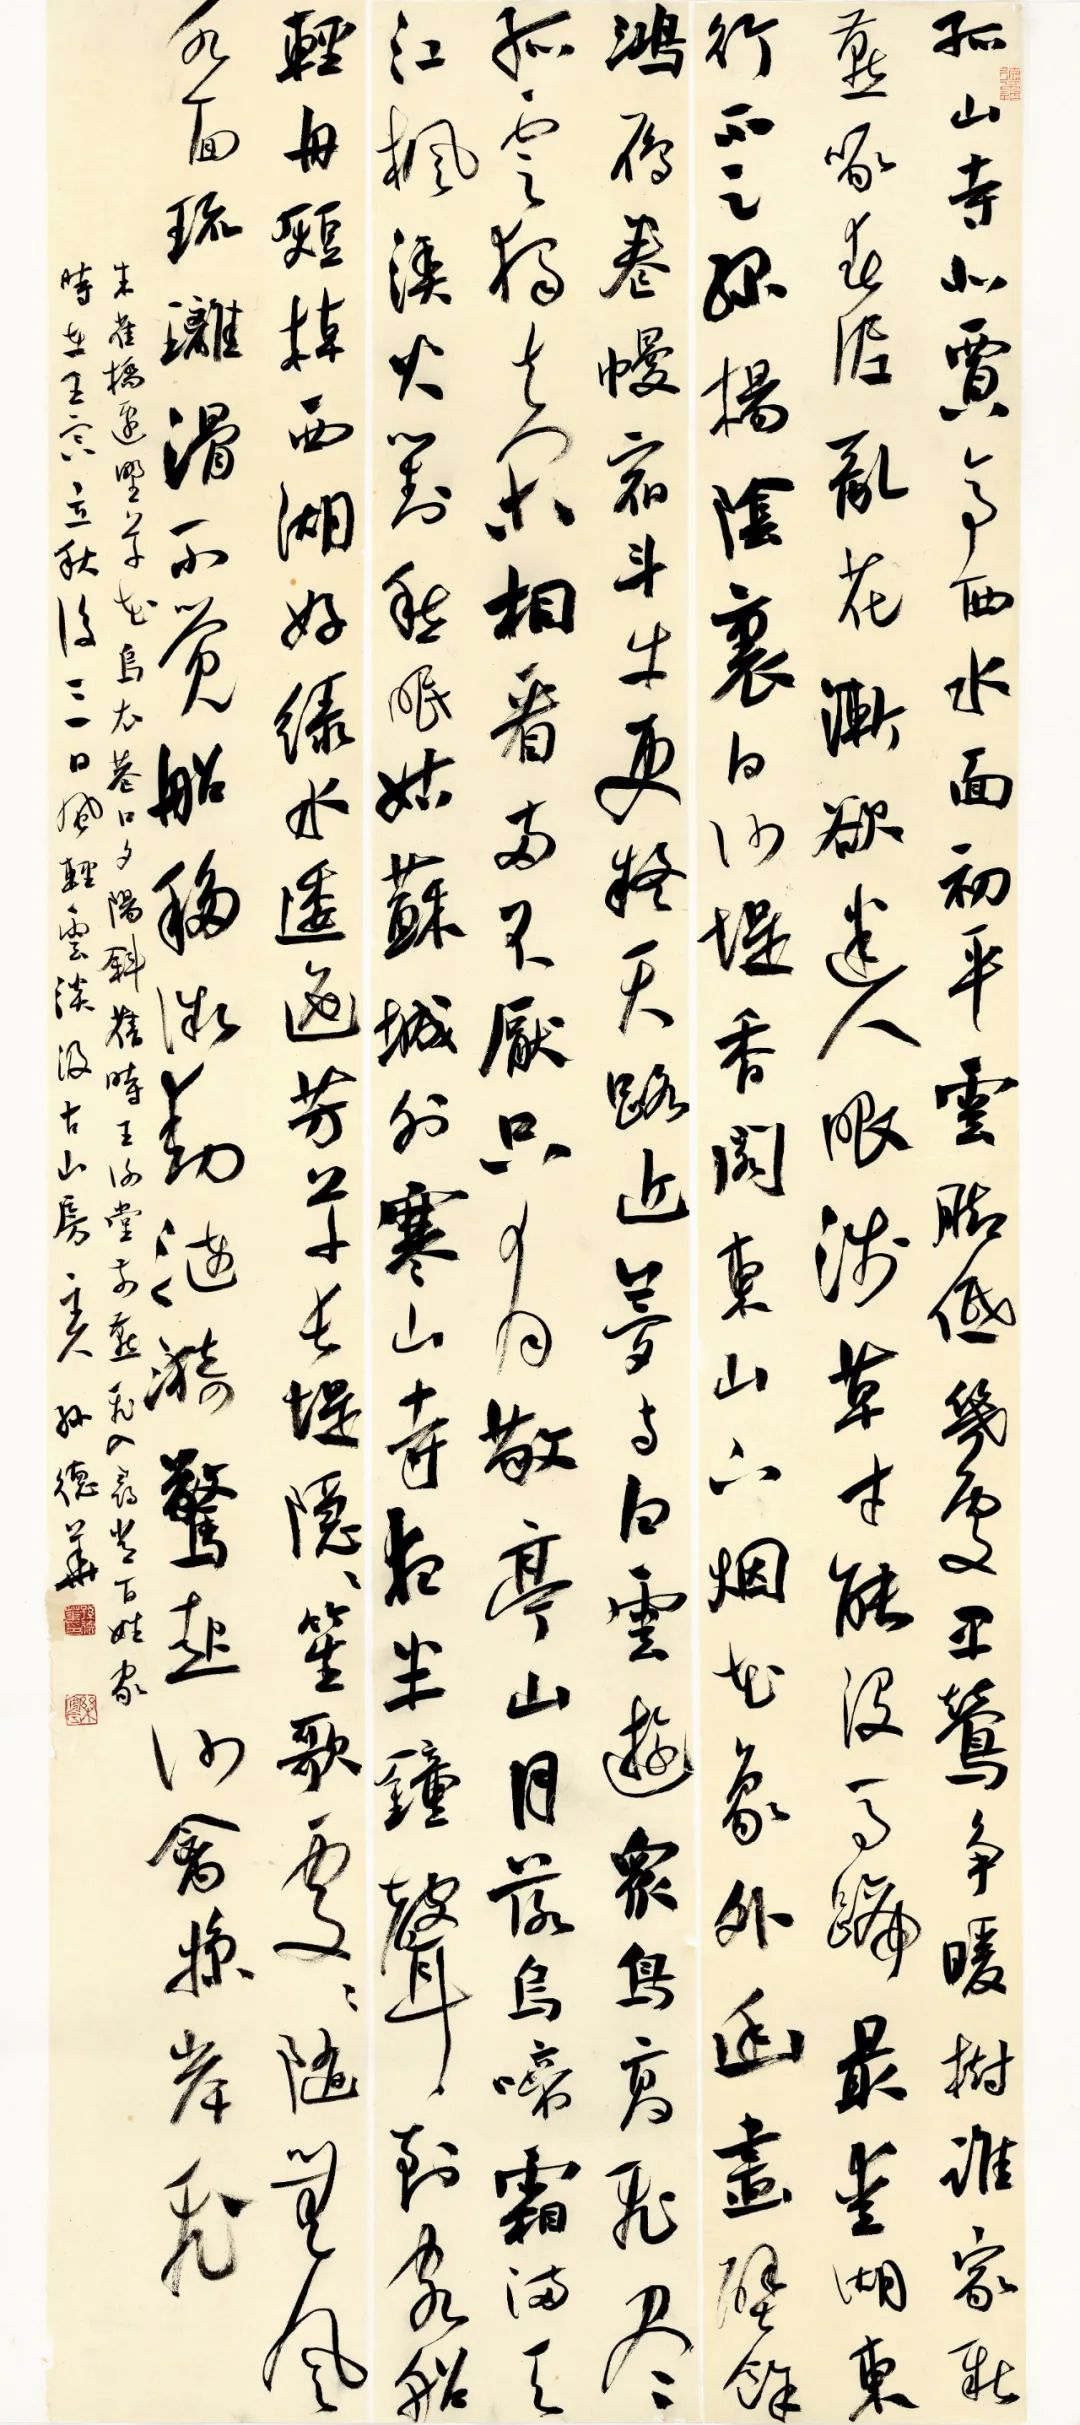 孤山寺北賈亭西水面初平雲脚低幾處早鶯争暖樹誰家新
燕啄春泥亂花漸欲迷人眼淺草才能没馬蹄最愛湖東
行不足綠楊陰裏白沙堤香閣東山下烟花象外幽畫壁餘
鴻雁卷幔宿斗牛更疑天路近夢與白雲遊衆鳥高飛盡
孤雲獨去閑相看兩不厭只有敬亭山月落烏啼霜滿天
江楓漁火對愁眠姑蘇城外寒山寺夜半鐘聲到客船
輕舟短棹西湖好綠水逶迤芳草長堤隱隱笙歌處處隨無風
水面琉璃滑不覺船移微動漣漪驚起沙禽掠岸飛
朱雀橋邊野草花烏衣巷口夕陽斜舊時王謝堂前燕飛入尋常百姓家
時在壬寅立秋後三日風輕雲淡汲古山房主人孫德華